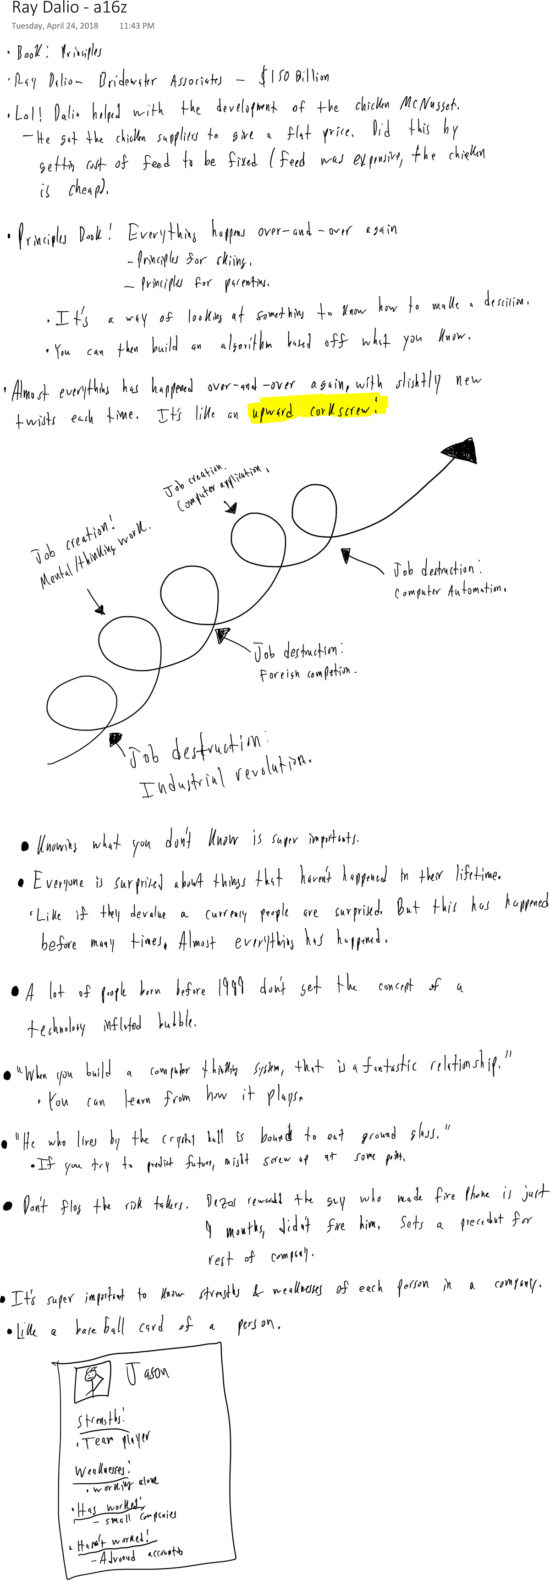 Ray Dalio - a16z
Tuesday, April 24, 2018 11:43 PM
• Book: Principles
• Ray Dalio - Bridewater Associates - $150 Billion
• Lol! Dalio helped with the development of the chicken McNugget.
- He got the chicken suppliers to give a flat price. Did this by
getting cost of feed to be fixed (feed was expensive, the chicken
is cheap).
• Principles Book: Everything happens over-and-over again
- Principles for skiing.
- Principles for parenting.
• It's a way of looking at something to know how to make a descision.
• You can then build an algorithm based off what you know.
• Almost everything has happened over-and-over again, with slightly new
twists each time. It's like an upward corkscrew!
Job creation:
Computer application.
Job creation:
Mental/thinking work.
Job destruction:
Computer Automation.
Job destruction:
Foreign competion.
Job destruction:
Industrial revolution.
• Knowing what you don't know is super importants.
• Everyone is surprised about things that haven't happened in their lifetime.
• Like if they devalue a currency people are surprised. But this has happened
before many times. Almost everything has happened.
• A lot of people born before 1999 don't get the concept of a
technology inflated bubble.
• "When you build a computer thinking system, that is a fantastic relationship."
• You can learn from how it plays.
• "He who lives by the crystal ball is bound to eat ground glass."
• If you try to predict future, might screw up at some point.
• Don't flog the risk takers. Bezos rewarded the guy who made fire Phone is just
9 months, didn't fire him. Sets a precedent for
rest of company.
• It's super important to know strengths & weaknesses of each person in a company.
• Like a baseball card of a person.
Jason
Strengths:
• Team player
Weaknesses:
• working alone
• Has worked:
- small companies
• Hasn't worked:
- Advanced accounting